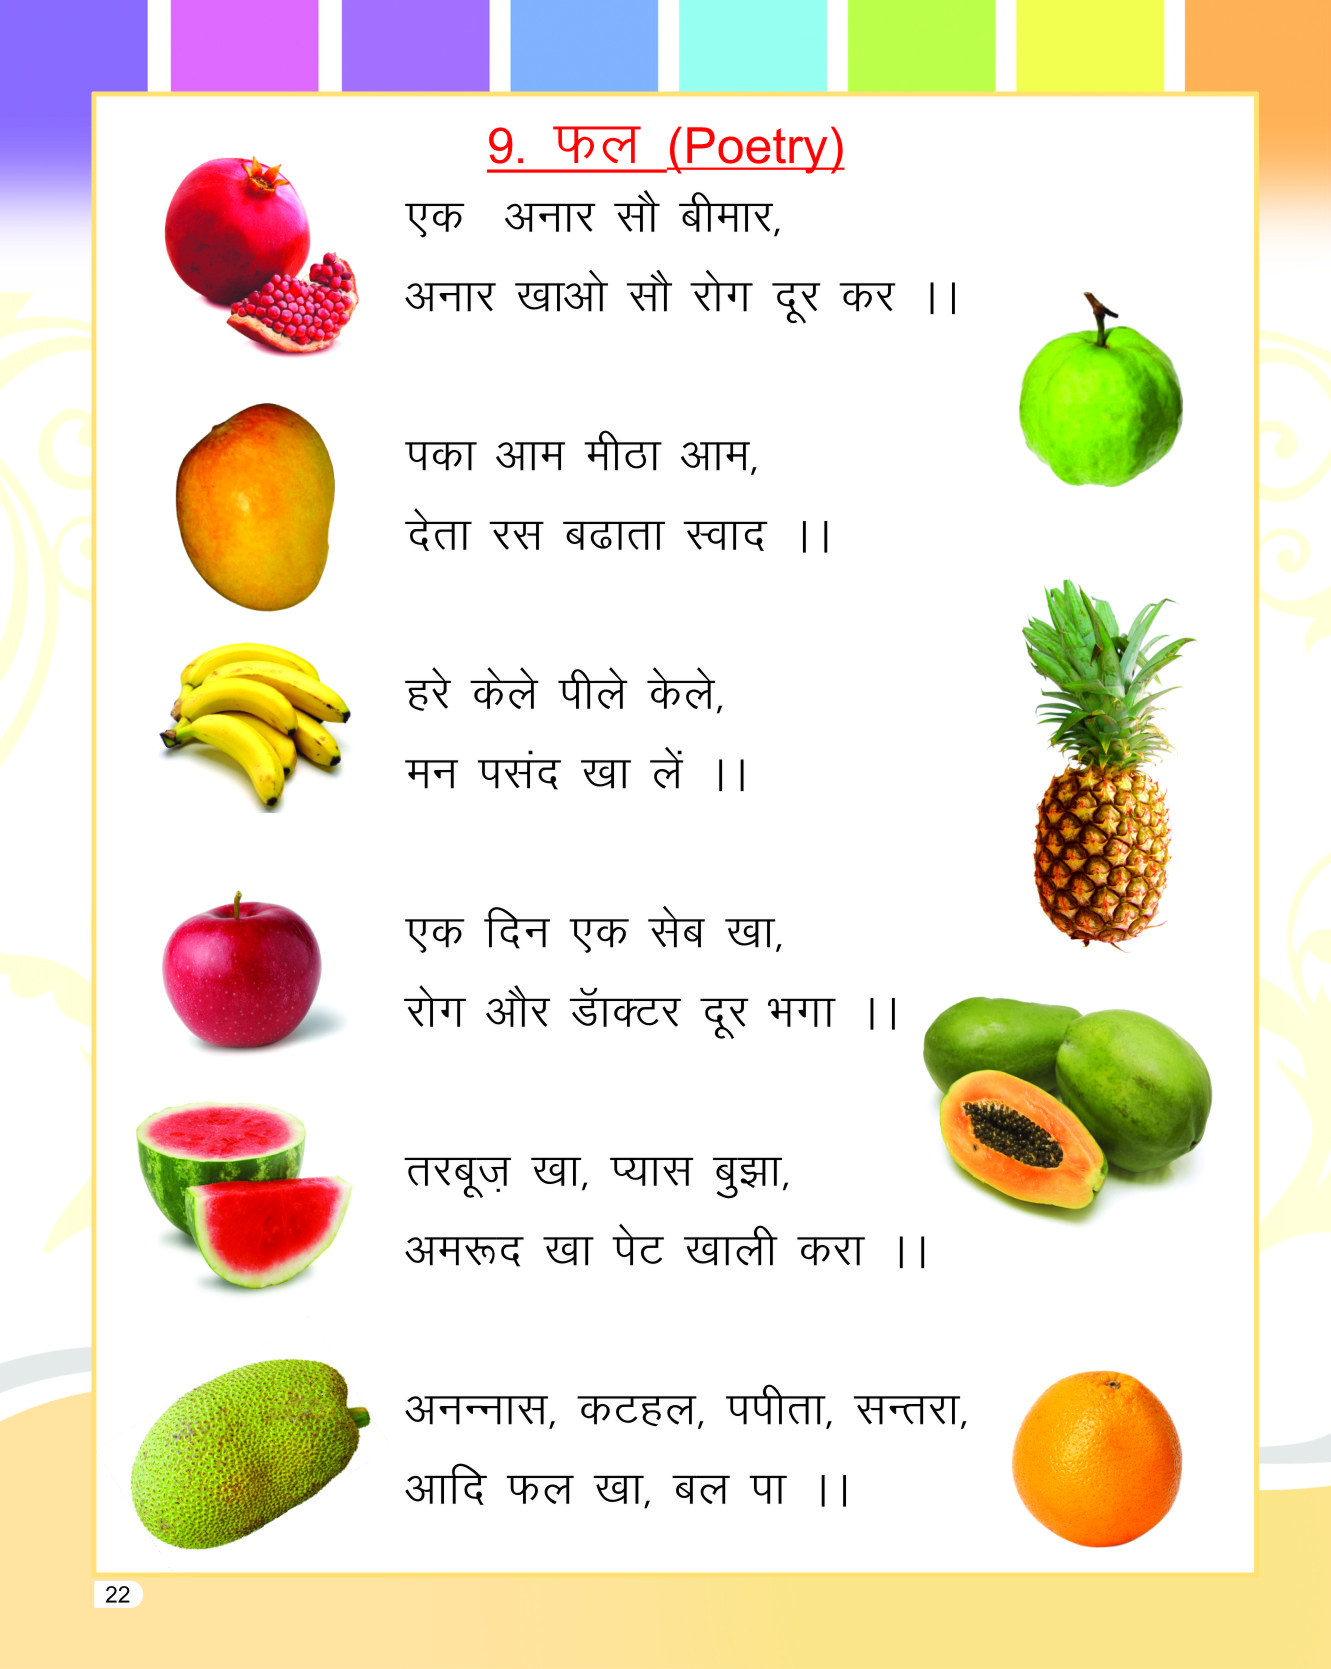 9. फल (Poetry)
एक अनार सौ बीमार,
अनार खाओ सौ रोग दूर कर ।।
पका आम मीठा आम,
देता रस बढाता स्वाद ।।
हरे केले पीले केले,
मन पसंद खा लें ।।
एक दिन एक सेब खा,
रोग और डॅाक्टर दूर भगा ।।
तरबूज़ खा, प्यास बुझा,
अमरूद खा पेट खाली करा ।।
अनन्नास, कटहल, पपीता, सन्तरा,
आदि फल खा, बल पा ।।
22